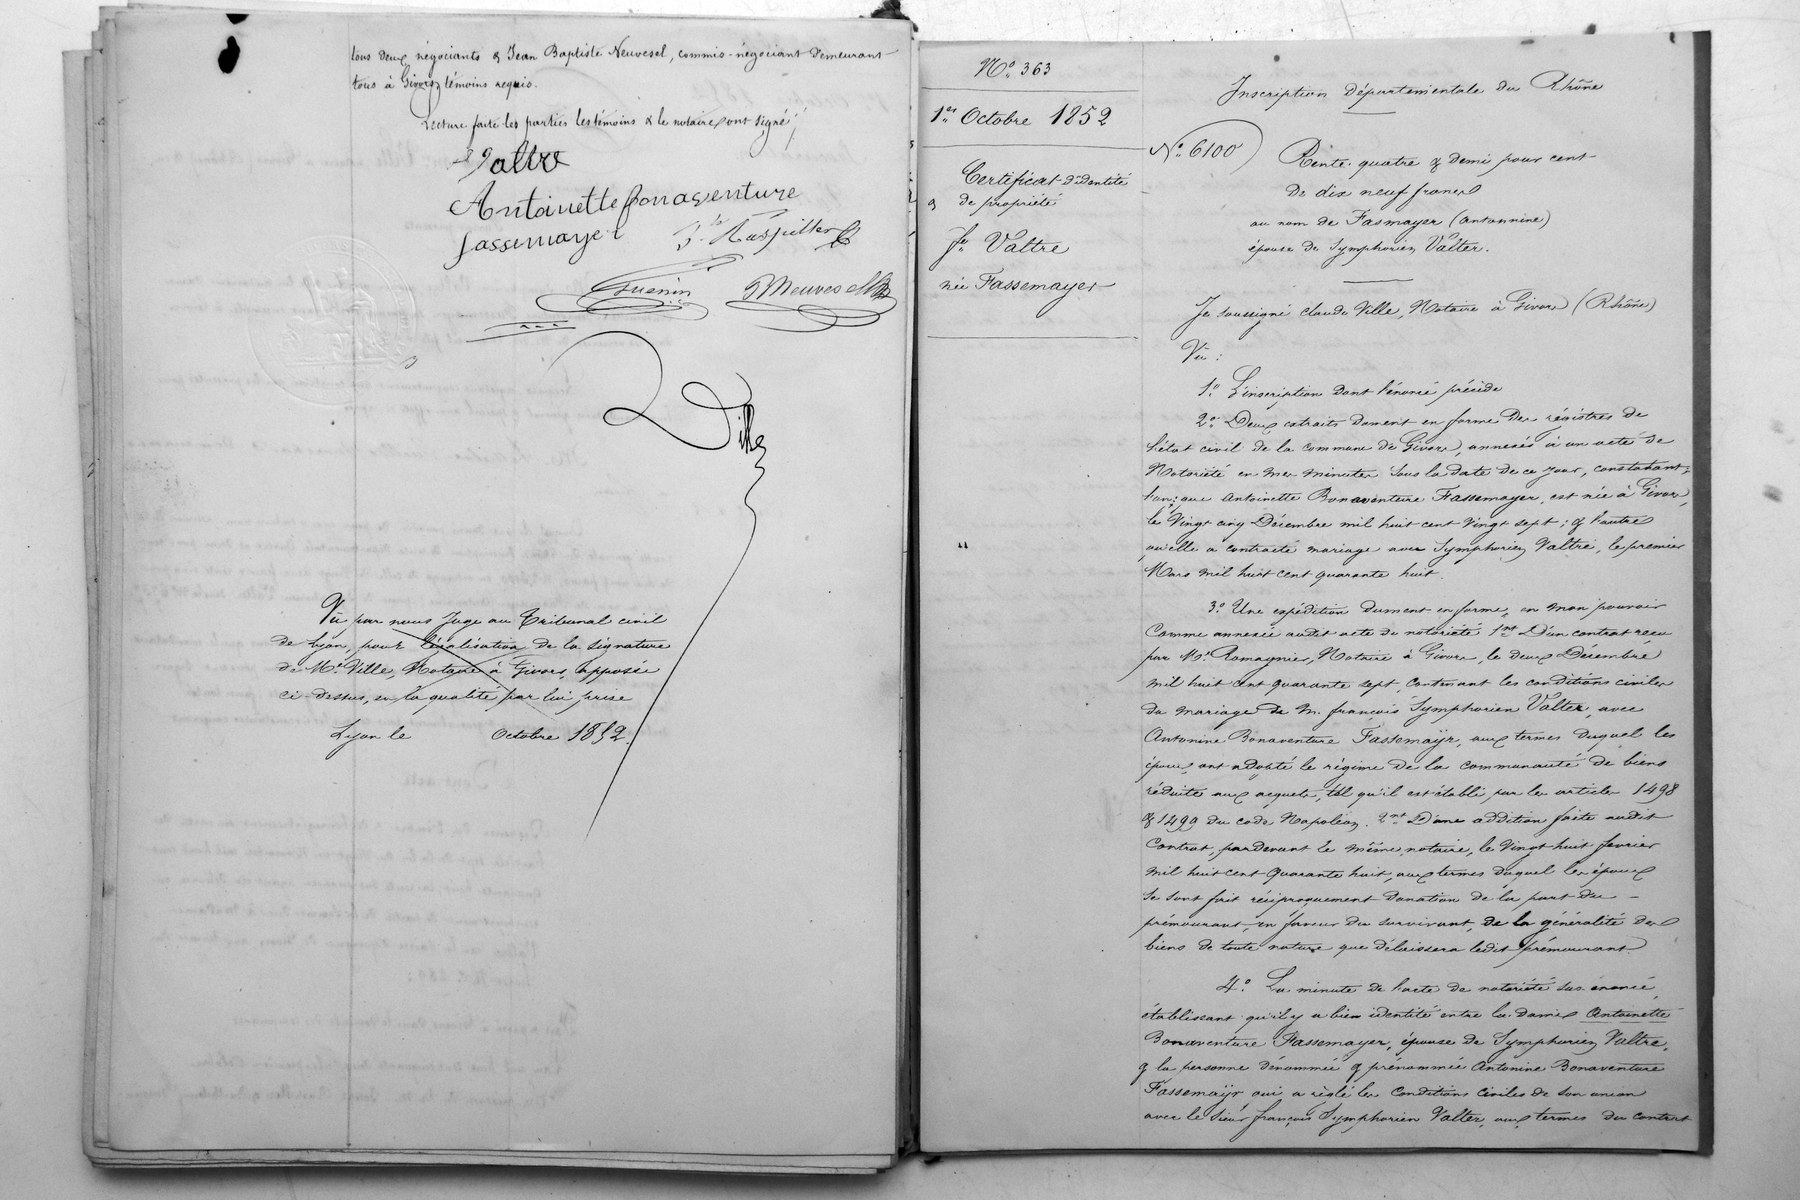 tous deux négociants & Jean Baptiste Neuvesel, commis-négociant demeurant
tous à Givors, témoins requis.
Lecture faite les parties les témoins & le notaire ont signé
Valtre
Antoinette Bonaventure
fassemayer
Guenin
Neuvesel
Ville
Vû par nous Juge au Tribunal civil
de Lyon, pour légalisation de la signature
de Me Ville, Notaire à Givors, apposée
ci dessus, en la qualité par lui prise
Lyon le Octobre 1852.
No 363
1er Octobre 1852
Certificat d'identité
& de propriété
fe Valtre
née Fassemayer
Inscription Départementale du Rhône
No 6100
Rente quatre & demi pour cent
De dix neuf francs
au nom de Fasmayer (antonnine)
épouse de Symphorien Valter.
Je soussigné claude Ville, Notaire à Givors (Rhône)
Vû :
1o L'inscription dont l'énoncé précède
2o Deux extraits dument en forme des régistres de
l'état civil de la commune de Givors, annexés à un acte de
Notoriété en mes minutes sous la date de ce jour, constatant,
l'un; que Antoinette Bonaventure Fassemayer, est née à Givors,
le Vingt cinq Décembre mil huit cent vingt sept; & l'autre
qu'elle a contracté mariage avec Symphorien Valtre, le premier
Mars mil huit cent quarante huit.
3o Une expédition dument en forme, en mon pouvoir
Comme annexée audit acte de notoriété 1ent D'un contrat reçu
par Me Romagnier, Notaire à Givors, le deux Décembre
mil huit cent quarante sept, contenant les conditions civiles
du mariage de M. françois Symphorien Valter, avec
Antonine Bonaventure Fassemaÿr, aux termes duquel les
époux, ont adopté le régime de la communauté de biens
réduite aux acquets, tel qu'il est établi par les articles 1498
& 1499 du code Napoléon. 2ent D'une addition faite audit
Contrat, pardevant le même notaire, le Vingt huit fevrier
mil huit cent quarante huit, aux termes duquel les époux
se sont fait réciproquement donation de la part du
prémourant, en faveur du survivant, de la généralité des
biens de toute nature que délaissera ledit prémourant.
4o La minute de l'acte de notoriété sus-énoncé,
établissant qu'il y a bien identité entre la dame Antoinette
Bonaventure Fassemayer, épouse de Symphorien Valtre,
& la personne dénommée & prénommée Antonine Bonaventure
Fassemaÿr qui a réglé les conditions civiles de son union
avec le sieur françois Symphorien Valter, aux termes du contrat